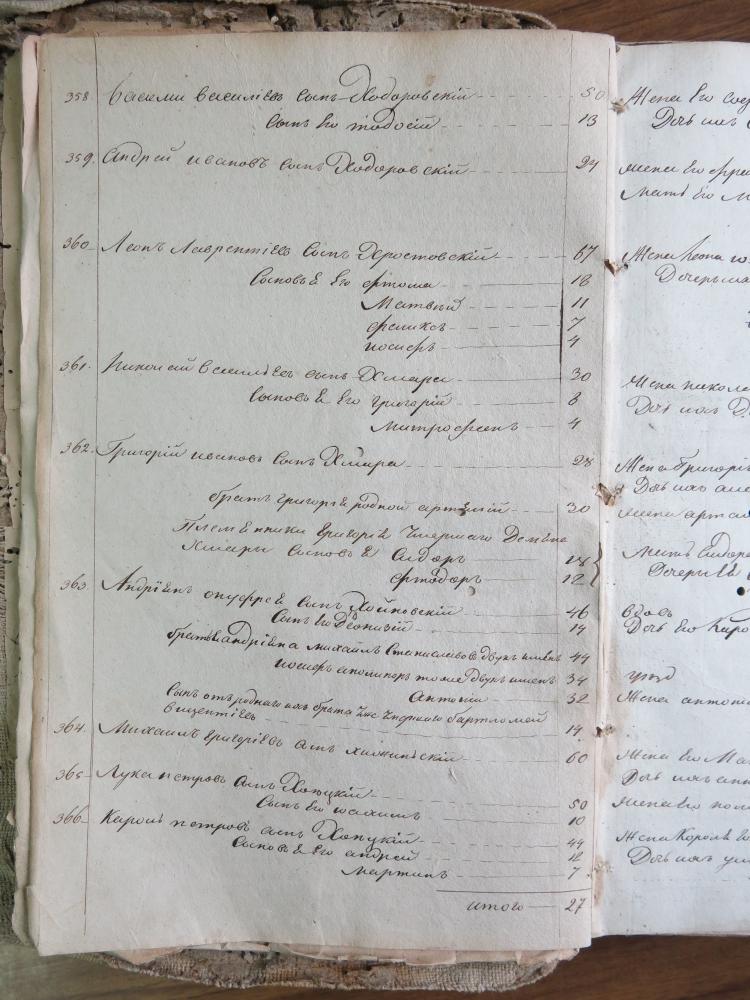 358. Василий Василиевъ сынъ Ходоровскій 50
Сынъ Его тодосій 13
359. Андрей ивановъ сынъ Ходоровскій 24
360. Леонъ Лаврентіевъ Сынъ Хростовскій 67
Сыновья Его фтома 18
Матвѣй 11
феликсъ 7
иосифъ 4
361. Николай василиевъ сынъ Хмара 30
Сыновья Его григорій 8
митрофанъ 4
362. Григорій ивановъ сынъ Хмара 28
братъ григорія родной артемій 30
Племянники григорія Умершаго Демяна
Хмары сыновья Сидоръ 14
фтодоръ 12
363. Андріянъ онуфрея сынъ Хойновскій 46
Сынъ Его Деонизій 14
братья андріяна михаилъ Станиславъ двухъ именъ 44
иосифъ аполинаръ тоже двухъ именъ 34
Антоній 32
Сынъ отъ роднаго ихъ брата бартломей
викентіевъ 14
364. Михаилъ григоріевъ сынъ 60
365. Лука петровъ сынъ Хоцкій 50
Сынъ Его иоахимъ 10
366. Кароль петровъ сынъ Хоцкій 44
Сыновья Его андрей 12
мартинъ 7
итого 27
Жена Его
Дочь ихъ
жена Его
Мать Его
Жена Леона
Дочерь
жена никола
Дочь ихъ
Жена Григорія
Дочь ихъ
жена
Мать Сидора
Дочерь
вдовъ
Дочь Его Каро
Жена антонія
Жена Его Ма
Дочь ихъ
жена Его
Жена Кароля
Дочь ихъ